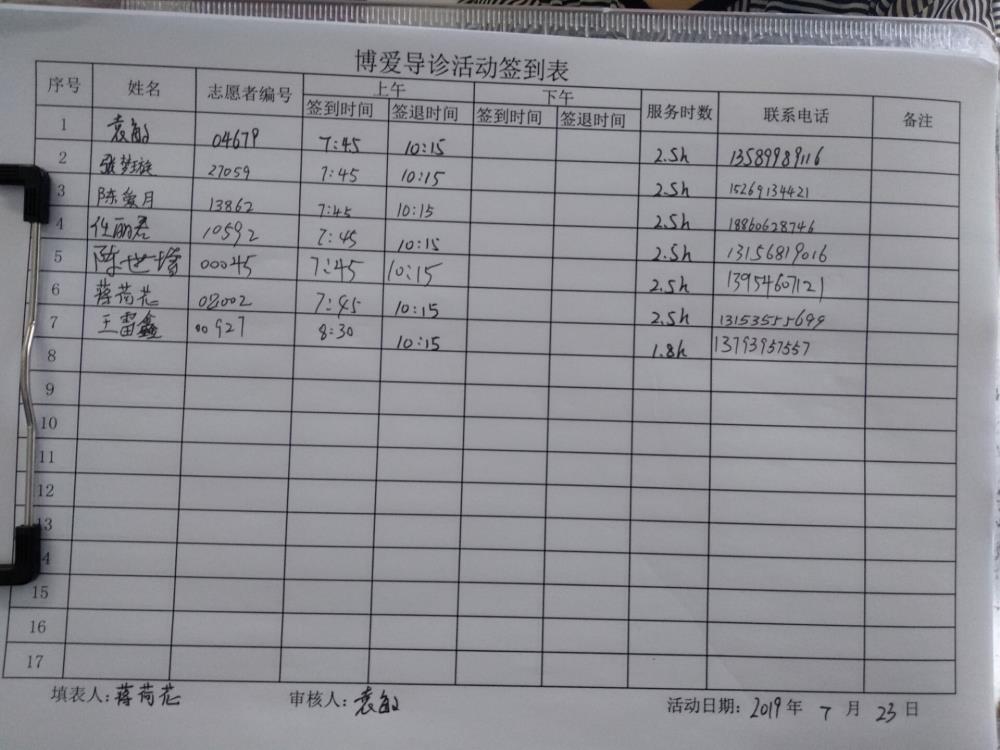 博爱导诊活动签到表
序号 姓名 志愿者编号 上午 下午 服务时数 联系电话 备注
签到时间 签退时间 签到时间 签退时间
1 袁敏 04679 7:45 10:15 2.5h 13589989116
2 张梦璇 27059 7:45 10:15 2.5h 15269134421
3 陈爱月 13862 7:45 10:15 2.5h 18860628746
4 任丽君 10592 7:45 10:15 2.5h 13156819016
5 陈世 00045 7:45 10:15 2.5h 13954607121
6 蒋荷花 08002 7:45 10:15 2.5h 13153555699
7 王雷鑫 00927 8:30 10:15 1.8h 13793957557
8
9
10
11
12
13
4
15
16
17
填表人:蒋荷花 审核人:袁敏 活动日期:2019年 7 月 23 日